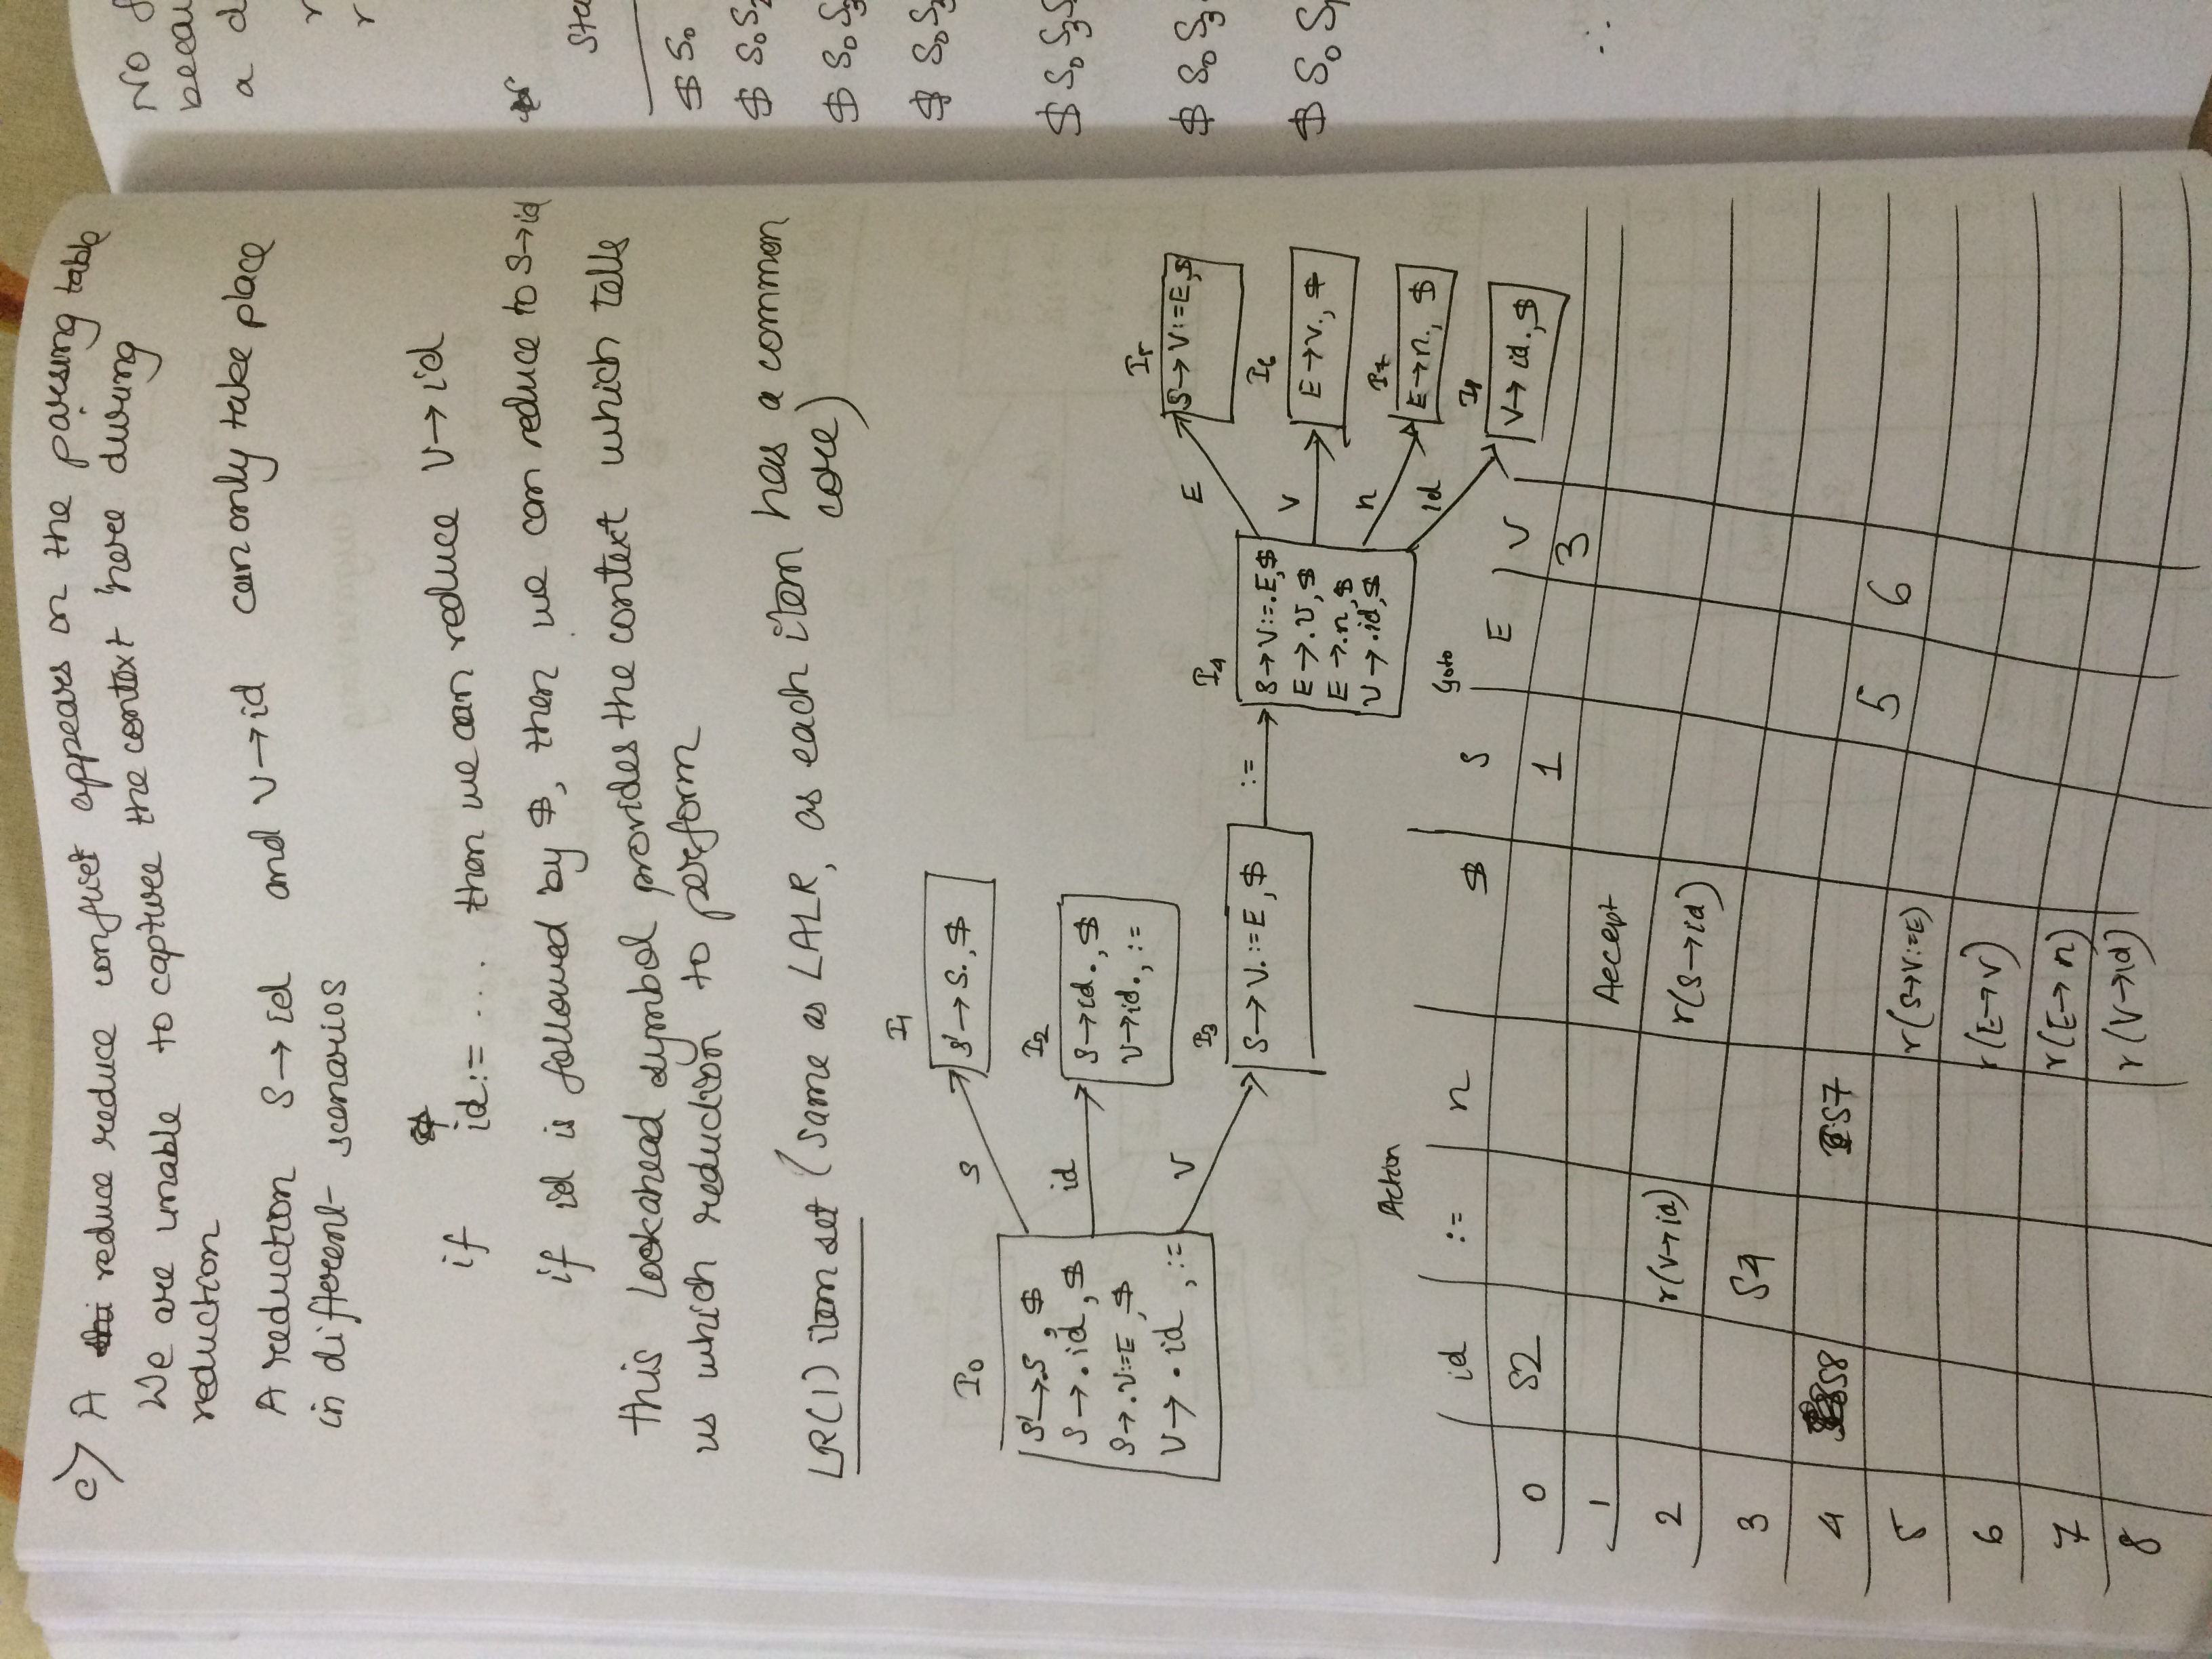 c) A reduce reduce conflict appears on the parsing table
We are unable to capture the context here during
reduction
A reduction S → id and V → id can only take place
in different scenarios
if id := ... then we can reduce V → id
if id is followed by $, then we can reduce to S → id
this lookahead symbol provides the context which tells
us which reduction to perform
LR(1) item set (same as LALR, as each item has a common
core)
I0
S' → .S , $
S → . id , $
S → . V := E , $
V → . id , :=
S
I1
S' → S. , $
id
I2
S → id . , $
V → id . , :=
V
I3
S → V. := E , $
:=
I4
S → V := . E, $
E → . V , $
E → . n , $
V → . id , $
E
I5
S → V := E, $
V
I6
E → V. , $
n
I7
E → n. , $
id
I8
V → id . , $
Action Goto
id := n $ S E V
0 S2 1 3
1 Accept
2 r(V → id) r(S → id)
3 S4
4 S8 S7 5 6
5 r(S → V := E)
6 r(E → V)
7 r(E → n)
8 r(V → id)
No
a
r
r
$ S0
$ S0 S2
$ S0 S3
$ S0 S3
$ S0 S3
$ S0 S3
$ S0 S1